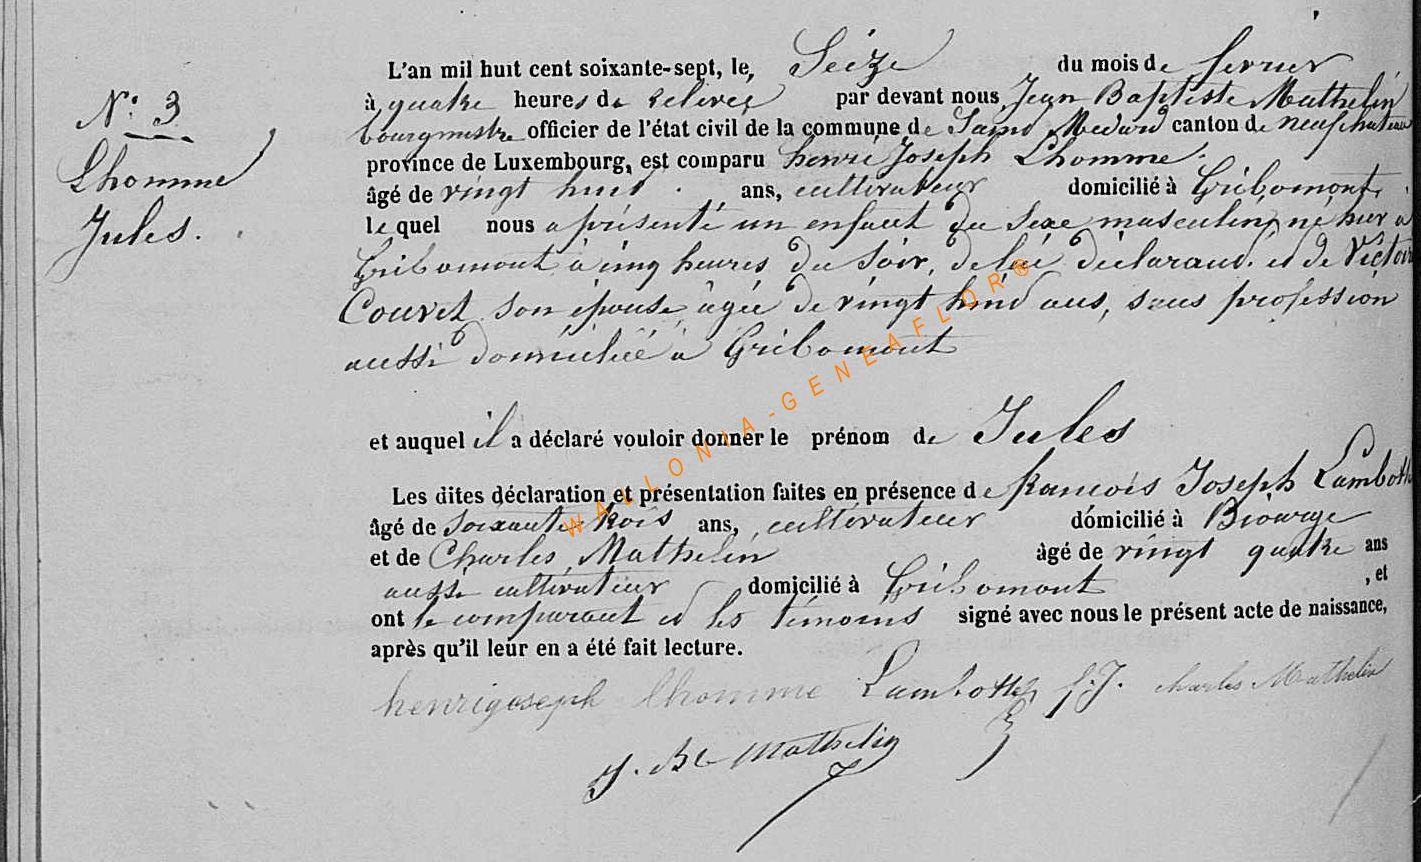 N° 3
Lhomme
Jules.
L'an mil huit cent soixante-sept, le, Seize du mois de fevrier
à quatre heures de relevée par devant nous Jean Baptiste Mathelin
bourgmestre officier de l'état civil de la commune de Saint Medard canton de neufchateau
province de Luxembourg, est comparu henri Joseph Lhomme.
âgé de vingt huit ans, cultivateur domicilié à Gribomont,
lequel nous a présenté un enfant du sexe masculin, né hier à
Gribomont à cinq heures du soir, de lui déclarant et de Victoire
Couvet son épouse, âgée de vingt huit ans, sans profession
aussi domiciliée à Gribomont
et auquel il a déclaré vouloir donner le prénom de Jules
Les dites déclaration et présentation faites en présence de francois Joseph Lambotte
âgé de soixante trois ans, cultivateur domicilié à Biourge
et de Charles Mathelin âgé de vingt quatre ans
aussi cultivateur domicilié à Gribomont , et
ont le comparant et les témoins signé avec nous le présent acte de naissance,
après qu'il leur en a été fait lecture.
henrijoseph lhomme Lambotte f. J. charles Mathelin
J. Bte Mathelin
WALLONIA-GENEAFLOR®